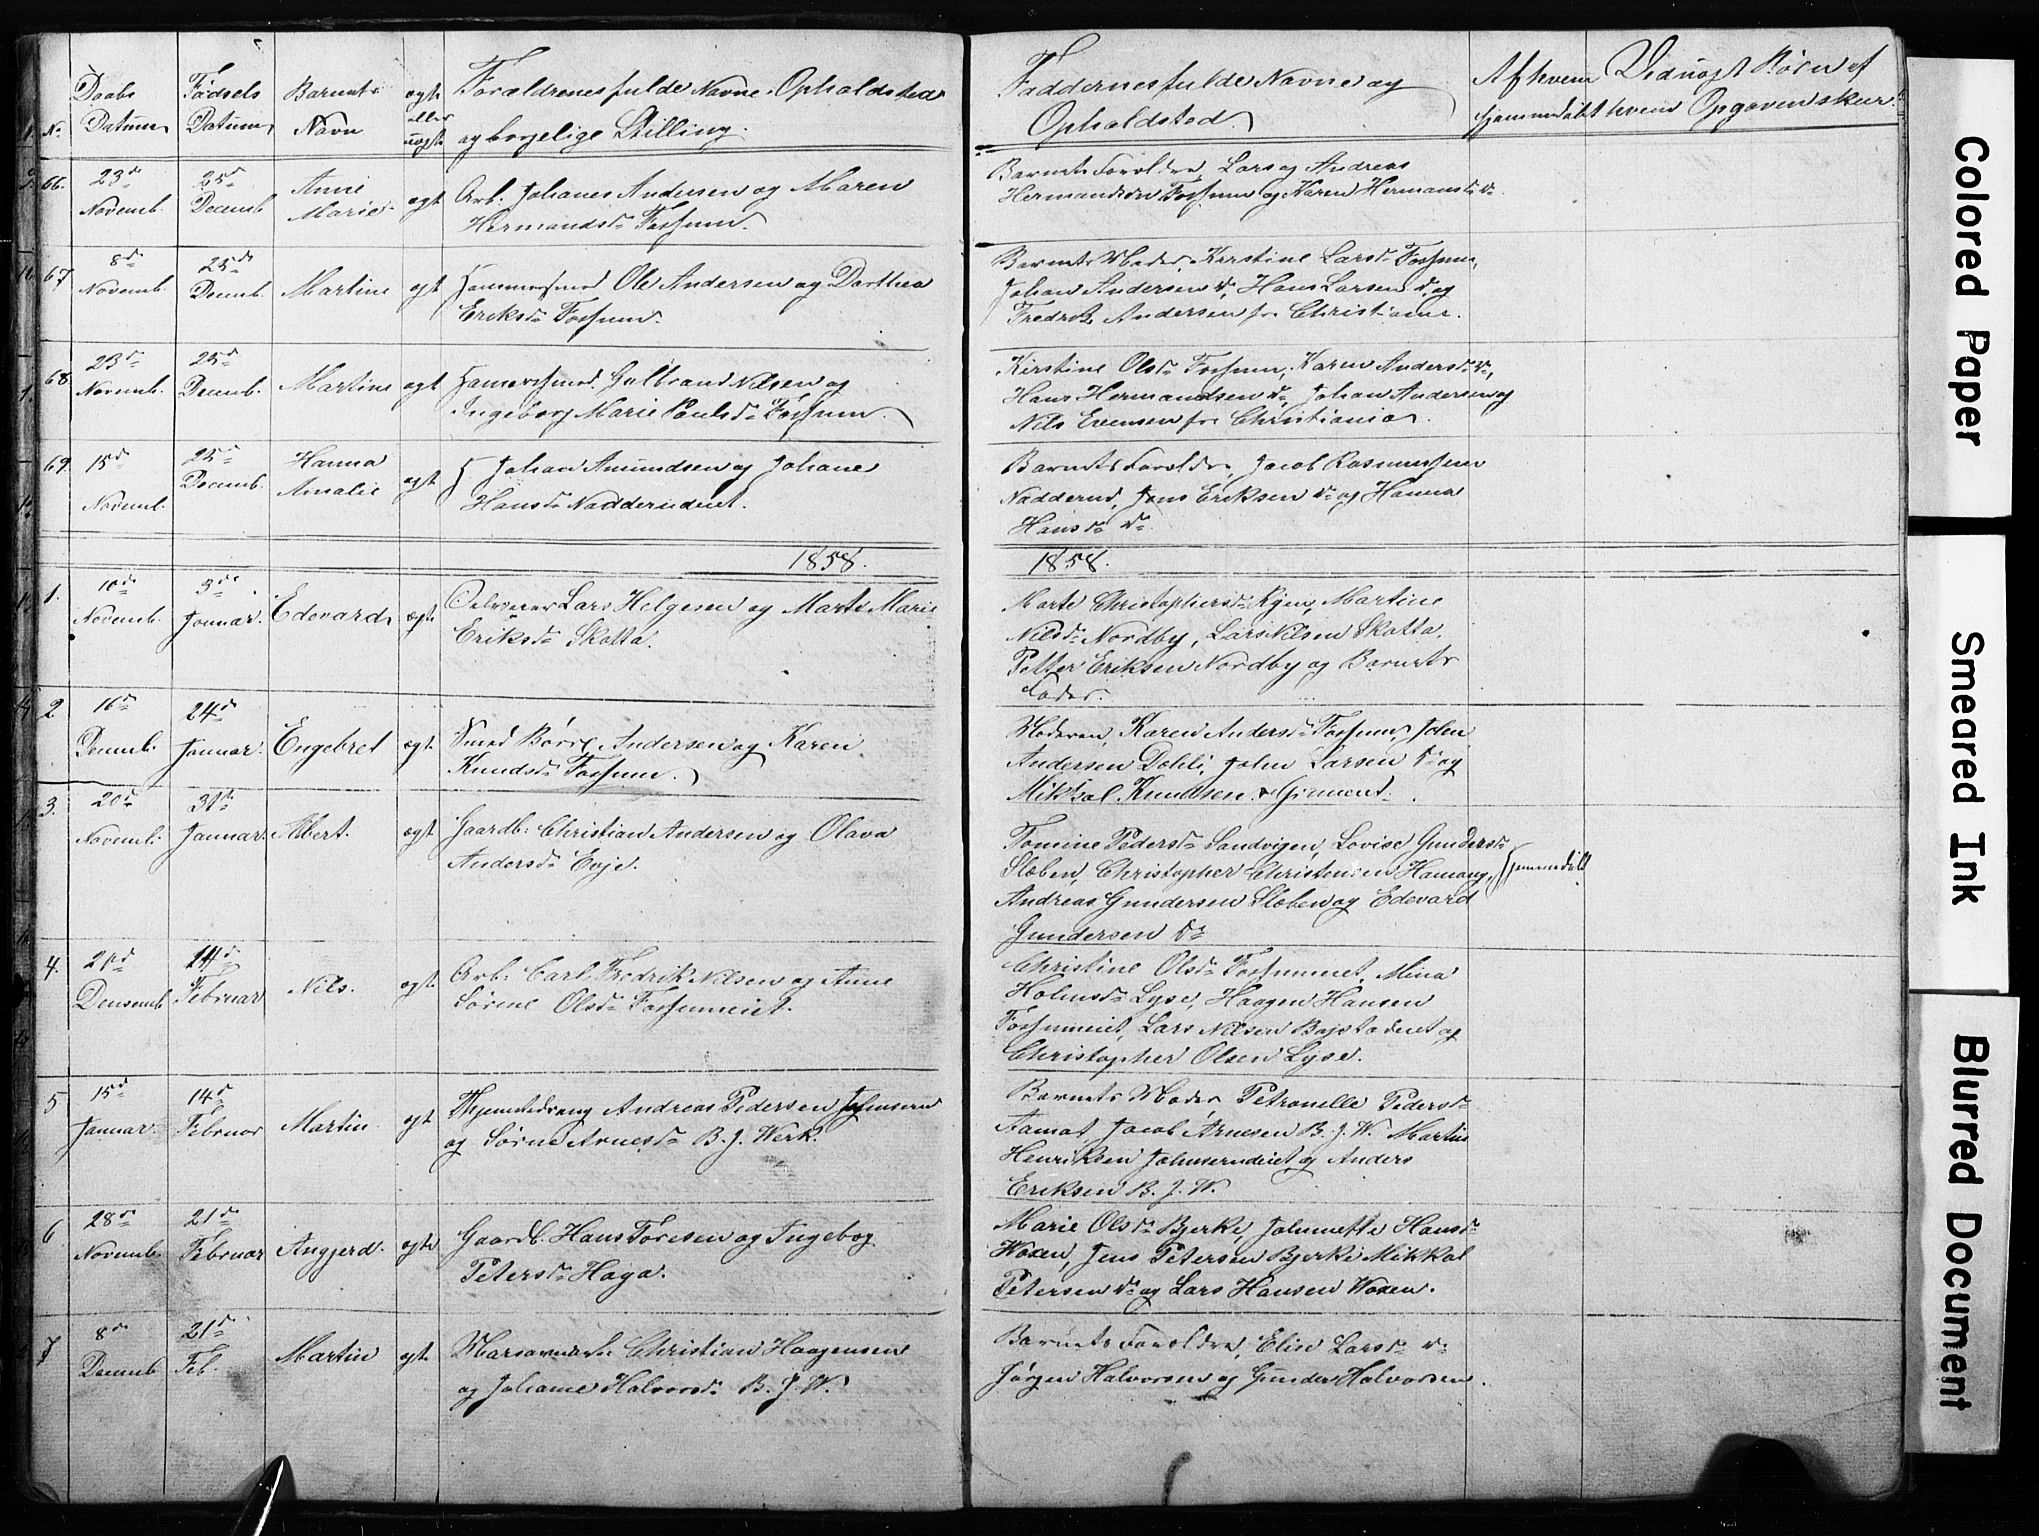 No. Daabs Datum Fødsels Datum Barnets Navn ægte eller uægte Forældrenes fulde Navne, Opholdsted og borgelige Stilling. Faddernes fulde Navne og Opholdsted. Af hvem hjemmedøbt Ved uægt Børn af hvem Opgaven skeer
66. 23d Novemb. 25d Decemb Anne Marie ægt Arb. Johanes Andersen og Maren
Hermandsd Fossum.
Barnets Forældre, Lars og Andreas
Hermandsen Fossum og Karen Hermansd do
67 8d Novemb. 25d Decemb. Martine ægt Hammersmed Ole Andersen og Dorthea
Eriksd Fossum.
Barnets Moder, Kirstine Larsd Fossum,
Johan Andersen do, Hans Larsen do og
Fredrik Andersen fra Christiania.
68 23d Novemb. 25d Decemb. Martine ægt Hamersmed Gulbrand Nilsen og
Ingeborg Marie Paulsd Fossum.
Kirstine Olsd Fossum, Karen Andersd do,
Hans Hermandsen do, Johan Andersen og
Nils Evensen fra Christiania.
69. 15d Novemb. 25d Decemb. Hanna Amalie ægt H Johan Amundsen og Johane
Hansd Nadderudeiet.
Barnets Forældre, Jacob Rasmussen
Nadderud, Jens Eriksen do og Hanna
Hansd do.
1858. 1858.
1. 10d Novemb. 3d Januar. Edevard ægt Lars Helgesen og Marte Marie
Eriksd Skotta.
Marte Christophersd Kjøn, Martine
Nilsd Nordby, Lars Nilsen Skotta,
Petter Eriksen Nordby og Barnets
Fader.
2 16d Decemb. 24d Januar. Engebret ægt. Smed Børre Andersen og Karen
Knudsd Fossum.
Moderen, Karen Andersd Fossum, John
Andersen Dohli, John Larsen do og
Mikkal Knudsen
3. 20d Novemb. 31te Januar Albert. ægt Gaardb: Christian Andersen og Olava
Andersd Evje.
Tomine Pedersd Sandvigen, Lovise Gundersd
Sleben, Christopher Christensen Hamang, Hjemmedøbt
Andreas Gundersen Sleben og Edevard
Gundersen do
4. 21d Densemb. 14d Februar Nils. ægt. Arb: Carl Fredrik Nilsen og Anne
Sørine Olsd Fossumeiet.
Christine Olsd Fossumeiet, Mina
Holmsd Lyse, Haagen Hansen
Fossumeiet, Lars Nilsen Bogstadeiet og
Christopher Olsen Lyse.
5 15d Januar 14d Februar Martin ægt Andreas Pedersen Johnsrud
og Sørine Arnesd B. J. Werk.
Barnets Moder, Petronelle Pedersd
Aamot, Jacob Arnesen B. J. W. Martin
Henriksen Johnsrudeiet og Anders
Eriksen B. J. W.
6 28d Novemb. 21d Februar Angjerd. ægte Gaardb. Hans Toresen og Ingebog
Petersd Haga.
Marie Olsd Bjerke, Johnnette Hansd
Woxen, Jens Petersen Bjerke Mikkal
Petersen do og Lars Hansen Woxen.
7 8d Decemb 21d Feb. Martin ægt. Masovnarb. Christian Haagensen
og Johanne Halvorsd B. J. W.
Barnets Forældre, Elise Larsd do
Jørgen Halvorsen og Gunder Halvorsen.
Colored Paper
Smeared Ink
Blurred Document